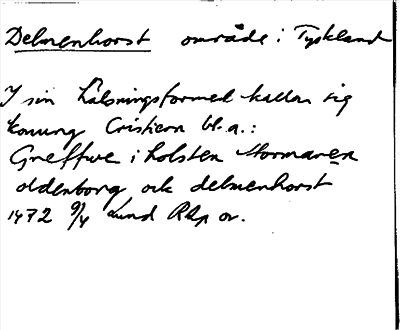 Delmenhorst område i Tyskland
I sin hälsningsformel kallar sig
konung Cristiern bl.a.:
Greffwe i holsten stormaren
oldenborg och delmenhorst
1472 9/4 Lund Rap or.